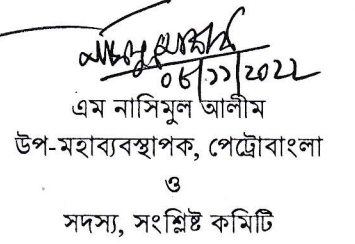 ০৮/১১/২০২২
এম নাসিমুল আলীম
উপ-মহাব্যবস্থাপক, পেট্রোবাংলা
ও
সদস্য, সংশ্লিষ্ট কমিটি